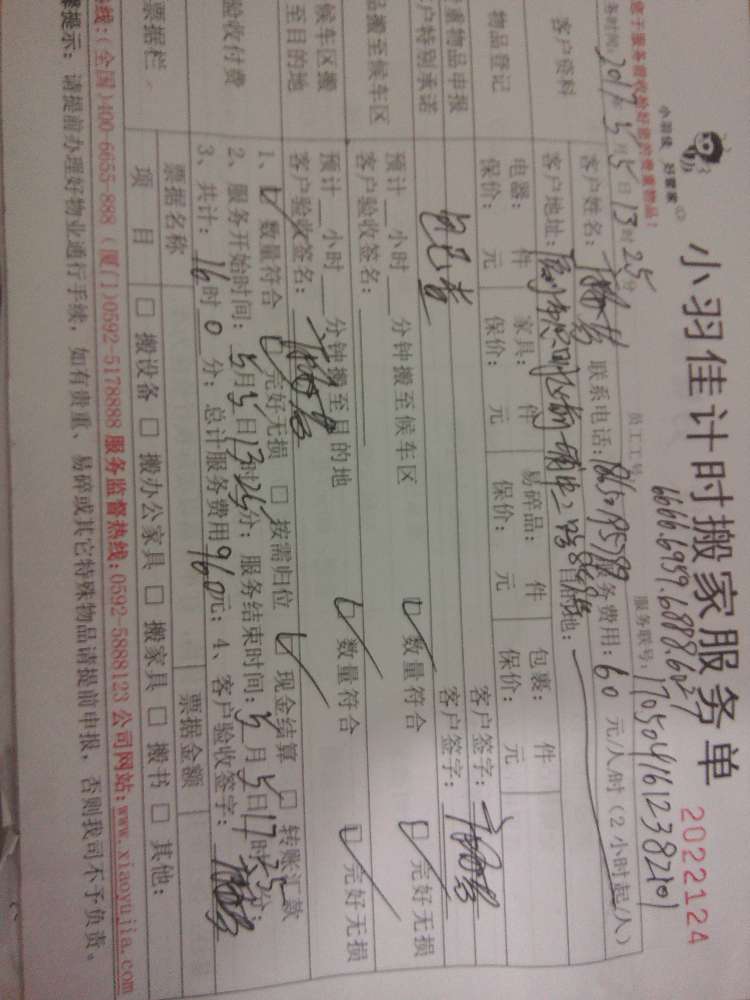 小羽佳 好管家
小羽佳计时搬家服务单
2022124
您于服务前收拾好您的贵重物品！
员工工号: 6666.6959.6888.6027
务时间: 2017年5月5日13时25分
服务联号: 1705041612382101
客户资料
客户姓名:
联系电话:
服务费用: 60 元/人时（2小时起/人）
客户地址:
目的地:
物品登记
电器: 件 家具: 件 易碎品: 件 包裹: 件
保价: 元 保价: 元 保价: 元 保价: 元
客户签字:
贵重物品申报
户特别承诺
客户签字:
品搬至候车区
预计__小时__分钟搬至候车区
数量符合
完好无损
客户验收签名:
候车区搬
至目的地
预计__小时__分钟搬至目的地
数量符合
完好无损
客户验收签名:
验收付费
1、数量符合 完好无损 □ 按需归位 现金结算 □ 转账汇款
2、服务开始时间: 5月5日13时25分; 服务结束时间: 5月5日17时35分;
3、共计: 16时0分; 总计服务费用960元; 4、客户验收签字:
票据栏
票据名称
票据金额
项 目
□ 搬设备 □ 搬办公家具 □ 搬家具 □ 搬书 □ 其他:
热线:(全国)400-6655-888 (厦门)0592-5178888 服务监督热线:0592-5888123 公司网站:www.xiaoyujia.com
提示: 请提前办理好物业通行手续, 如有贵重、易碎或其它特殊物品请提前申报, 否则我司不予负责。